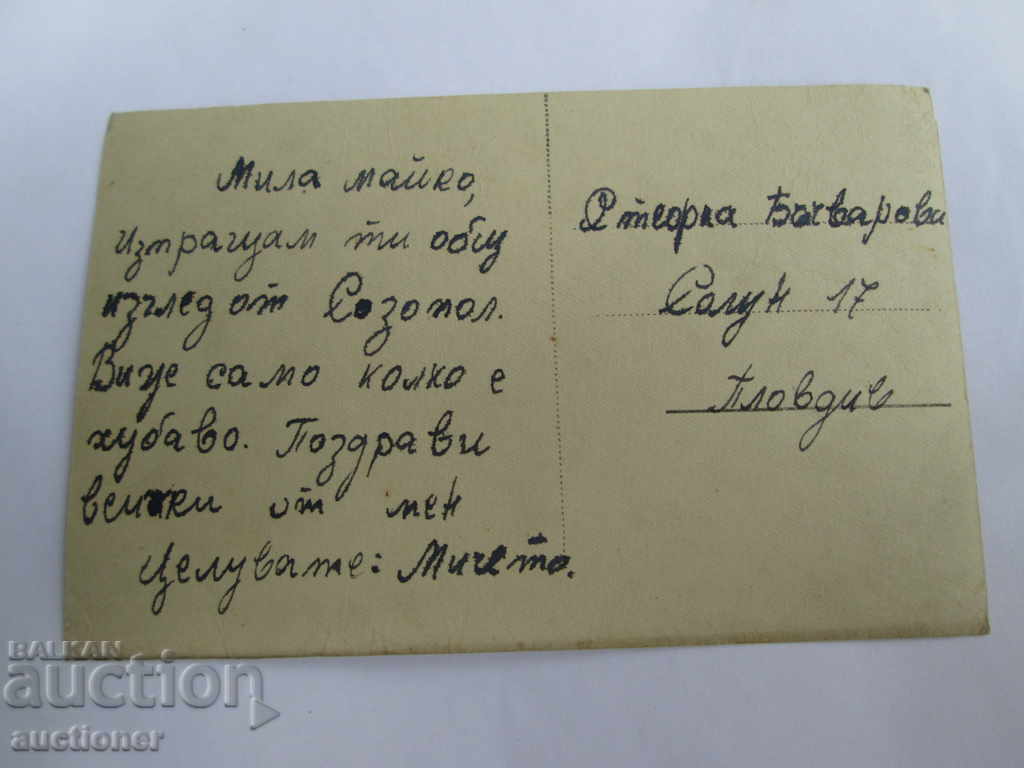 Мила майко,
изтращам ти общ
изглед от Созопол.
Виже само колко е
хубаво. Поздрави
всички от мен
Целувате: Мичето.
Бъчварови
Солун 17
Пловдив
BALKAN
auction
auctioner